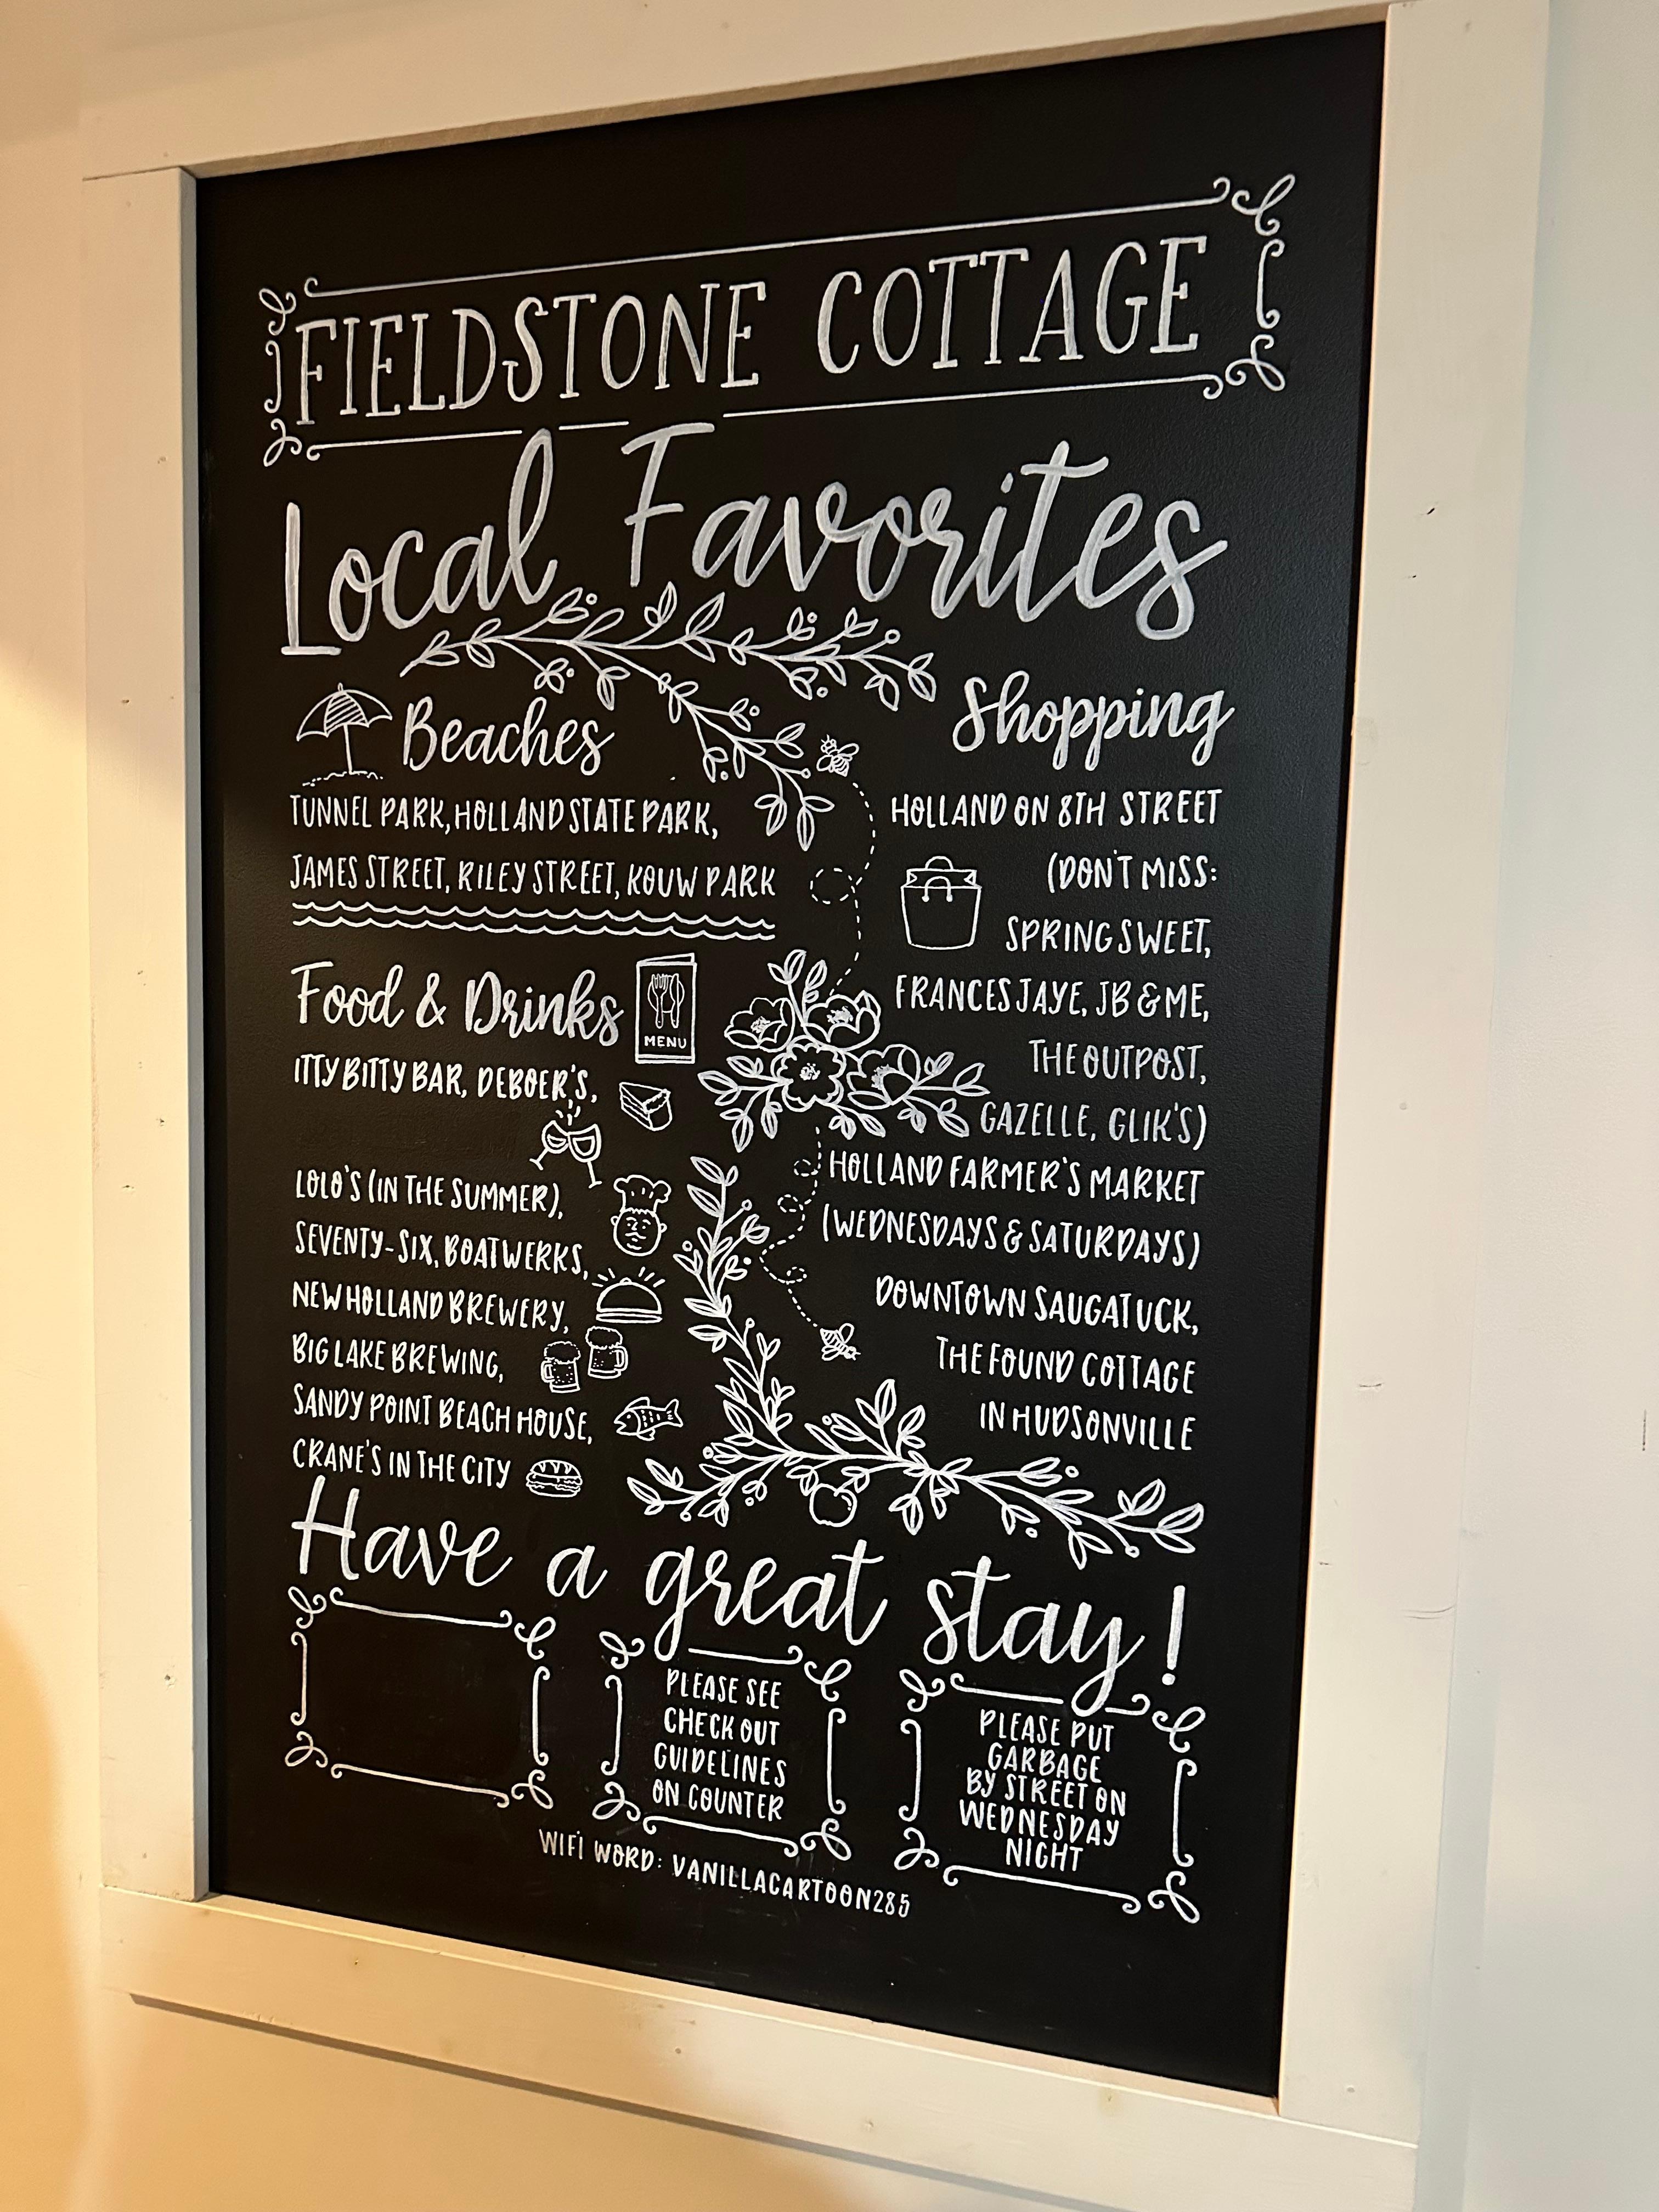 FIELDSTONE COTTAGE
Local Favorites
Beaches
TUNNEL PARK, HOLLAND STATE PARK,
JAMES STREET, RILEY STREET, KOUW PARK
Food & Drinks
MENU
ITTY BITTY BAR, DEBOER'S,
LOLO'S (IN THE SUMMER),
SEVENTY-SIX, BOATWERKS,
NEW HOLLAND BREWERY,
BIG LAKE BREWING,
SANDY POINT BEACH HOUSE,
CRANE'S IN THE CITY
Shopping
HOLLAND ON 8TH STREET
(DON'T MISS:
SPRING SWEET,
FRANCES JAYE, JB & ME,
THE OUTPOST,
GAZELLE, GLIK'S)
HOLLAND FARMER'S MARKET
(WEDNESDAYS & SATURDAYS)
DOWNTOWN SAUGATUCK,
THE FOUND COTTAGE
IN HUDSONVILLE
Have a great stay!
PLEASE SEE
CHECK OUT
GUIDELINES
ON COUNTER
PLEASE PUT
GARBAGE
BY STREET ON
WEDNESDAY
NIGHT
WIFI WORD: VANILLACARTOON285